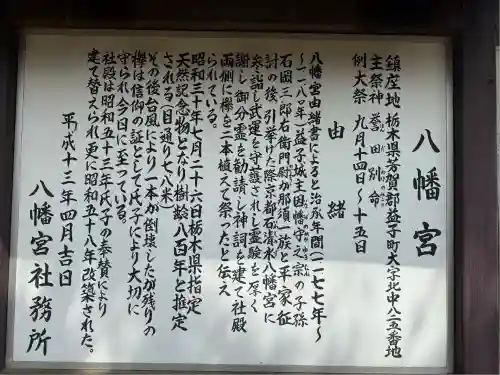 八幡宮
鎮座地 栃木県芳賀郡益子町大字北中八二五番地
主祭神 誉田別命
例大祭 九月十四日〜十五日
由緒
八幡宮由緒書によると治承年間(一一七七年〜
〜一一八〇年)益子城主固幡守之宗の子孫
石岡三郎右衛門尉が那須一族と平家征
討の後、引き挙げた際京都石清水八幡宮に
参詣し武運を守護されし霊験を厚く
謝し御分霊を勧請し神祠を建て社殿
両側に欅を二本植えて祭ったと伝え
られている。
昭和三十一年七月二十六日栃木県指定
天然記念物となり樹齢八百年と推定
される(目通りで八米)
その後台風により一本が倒壊したが残りの
欅は信仰の証として氏子により大切に
守られ今日に至っている。
社殿は昭和五十三年氏子の奉賛により
建て替えられ更に昭和五十八年改築された。
平成十三年四月吉日
八幡宮社務所